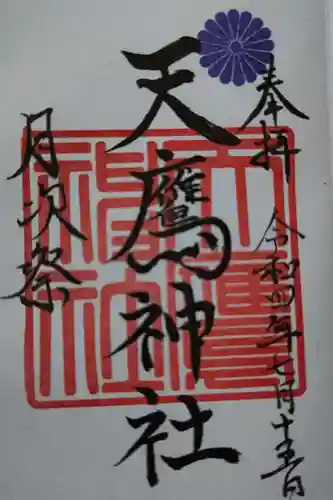 奉拝
令和四年七月十五日
天鷹神社
月次祭